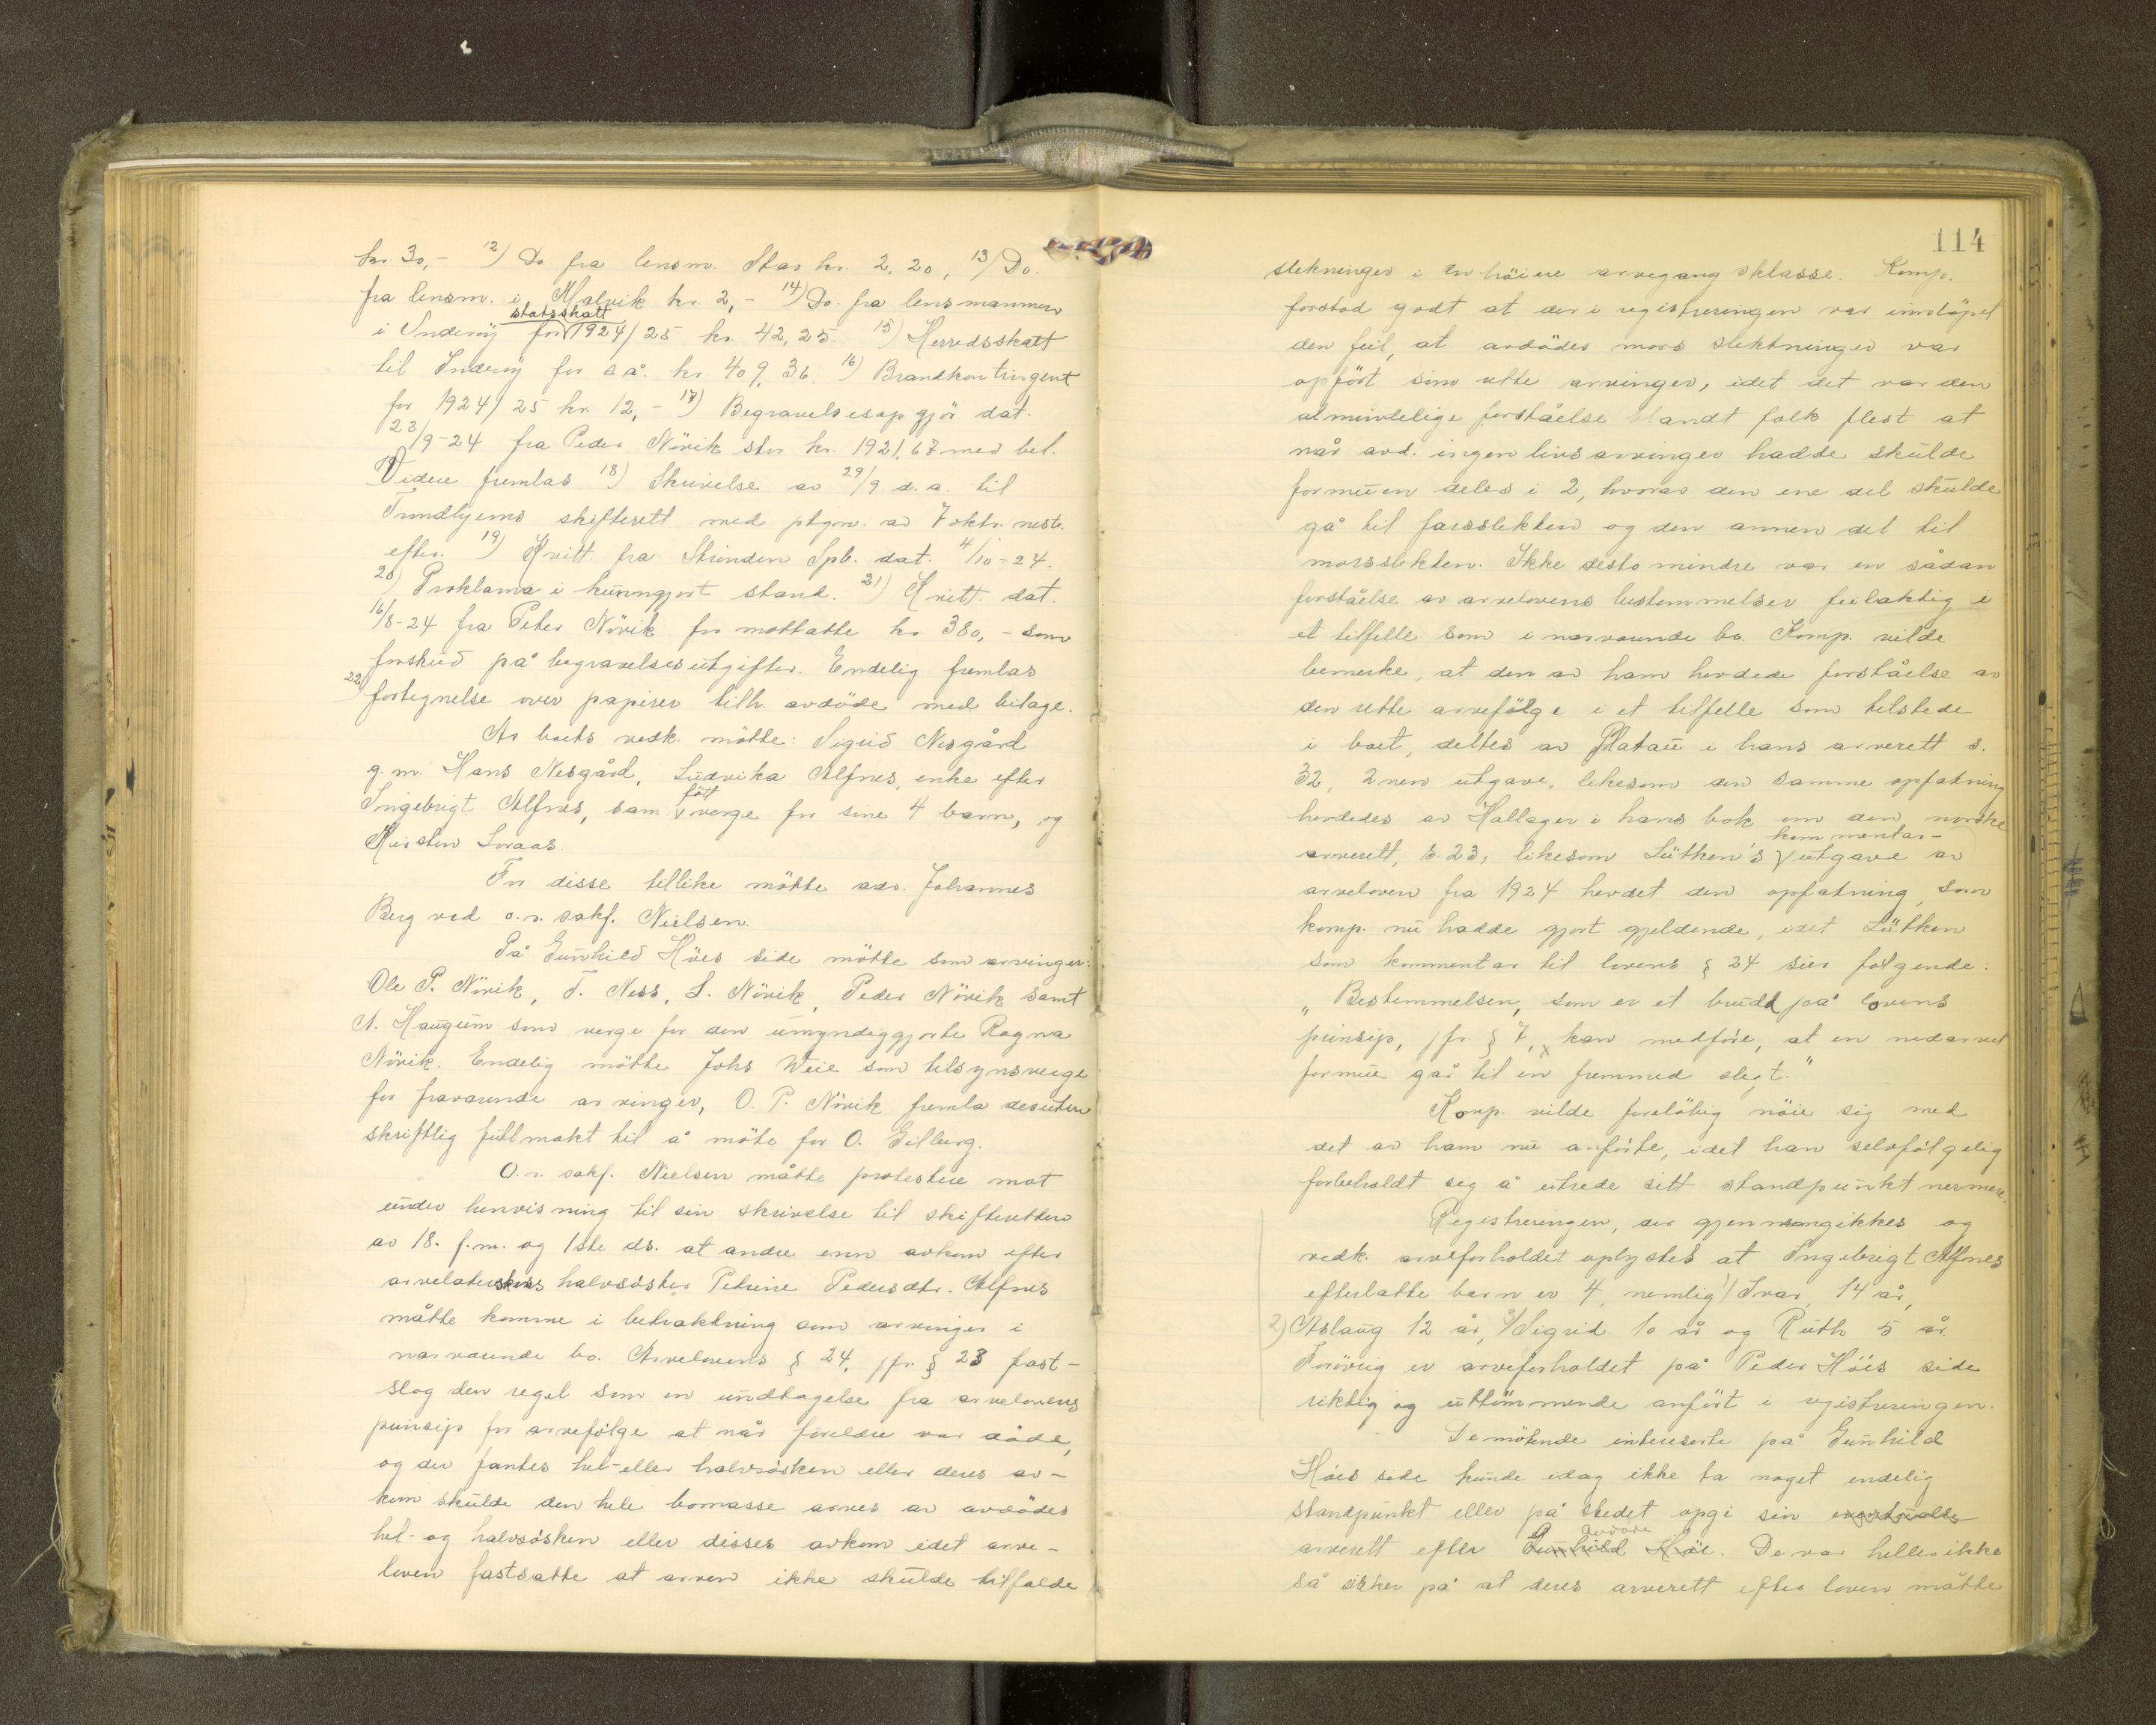 kr. 30,- 12) Do. fra lensm. Stav kr. 2,20, 13) Do.
fra lensm. i Malvik kr. 2,- 14) Do. fra lensmannen
i Inderöy statsskatt for 1924/25 kr. 42,25. 15) Herredsskatt
til Inderöy for s.å. kr. 409,36 16) Brandkontingent
for 1924/25 kr. 12,- 17) Begravelsesopgjör dat.
23/9-24 fra Peder Növik stor kr. 1921,67 med bil.
Videre fremlas 18) Skrivelse av 29/9 d.a. til
Trondhjems skifterett med ptgn. av 7 oktr. nest.
efter. 19) Kvitt. fra Strinden Spb. dat. 4/10-24.
20) Proklama i kunngjort stand. 21) Kvitt. dat.
16/8-24 fra Peter Növik for mottatte kr. 380,- som
forskud på begravelsesutgifter. Endelig fremlas
22) fortegnelse over papirer tilh. avdöde med bilage.
Av boets vedk. mötte: Sigrid Nesgård
g.m. Hans Nesgård, Ludvika Alfnes, enke efter
Ingebrigt Alfnes, sam född verge for sine 4 barn, og
Kirsten Loraas.
For disse tillike mötte adv. Johannes
Berg ved o.r. sakf. Nielsen.
På Gunhild Höes side mötte som arvinger:
Ole P. Növik, T. Ness, L. Növik, Peder Növik samt
A. Haugum som verge for den umyndiggjorte Ragna
Növik. Endelig mötte Johs Weie som tilsynsverge
for fraværende arvinger, O. P. Növik fremla desuten
skriftlig fullmakt til å möte for O. Gilberg.
O.r. sakf. Nielsen måtte protestere mot
under henvisning til sin skrivelse til skifteretten
av 18. f.m. og 1ste ds. at andre enn avkom efter
arvelaterskens halvsöster Petrine Pedersdtr. Alfnes
måtte komme i betraktning som arvinger i
nærværende bo. Arvelovens § 24, jfr. § 23 fast-
slog den regel som en undtagelse fra arvelovens
prinsip for arvefölge at når foreldre var döde,
og der fantes hel- eller halvsösken eller deres av-
kom skulde den hele bomasse arves av avdödes
hel- og halvsösken eller disses avkom idet arve-
loven fastsatte at arven ikke skulde tilfalde
114
slekninger i en höiere arvegangsklasse. Komp.
forstod godt at der i registreringen var innlöpet
den feil, at avdödes mors slektninger var
opfört som rette arvinger, idet det var den
almindelige forståelse blandt folk flest at
når avd. ingen livsarvinger hadde skulde
formuen deles i 2, hvorav den ene del skulde
gå til farsslekten og den annen del til
morsslekten. Ikke desto mindre var en sådan
forståelse av arvelovens bestemmelser feilaktig i
et tilfelle som i nærværende bo. Komp. vilde
bemerke, at den av ham hevdede forståelse av
den rette arvefölge i et tilfelle som tilstede
i boet, deltes av Platou i hans arverett s.
32, 2nen utgave, likesom den samme opfatning
hevdedes av Hallager i hans bok om den norske
arverett, s. 23, likesom Lütken's kommentar-utgave av
arveloven fra 1924 hevdet den opfatning, som
komp. nu hadde gjort gjeldende, idet Lütken
som kommentar til lovens § 24 sier fölgende:
"Bestemmelsen, som er et brudd på lovens
prinsip, jfr. § 7, kan medföre, at en nedarvet
formue går til en fremmed slegt."
Komp. vilde forelöbig nöie sig med
det av ham nu anförte, idet han selvfölgelig
forbeholdt sig å utrede sitt standpunkt nermere.
Registreringen, der gjennemgikkes og
vedk. arveforholdet oplystes at Ingebrigt Alfnes
efterlatte barn er 4, nemlig 1) Ivar, 14 år,
2) Aslaug 12 år, 3) Sigrid 10 år og Ruth 5 år.
Forövrig er arveforholdet på Peder Höes side
riktig og uttömmende anfört i registreringen.
De mötende interesserte på Gunhild
Höes side kunde idag ikke ta noget endelig
standpunkt eller på stedet opgi sin eventuelle
arverett efter avdöde Gunhild Höe. De var heller ikke
så sikker på at deres arverett efter loven måtte